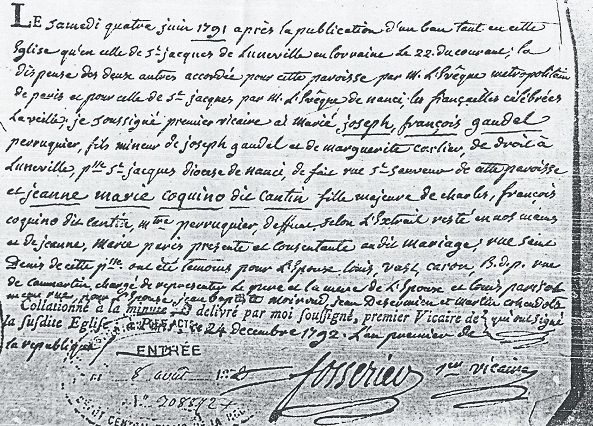 LE Samedi quatre juin 1791 après la publication d'un ban tant en cette
Eglise qu'en celle de St. jacques de Luneville en Lorraine le 22. du courant; la
dispense des deux autres accordée pour cette paroisse par M. L'Evêque métropolitain
de paris et pour celle de St. jacques par M. L'Evêque de nanci, les fiançailles célébrées
la veille; je soussigné premier vicaire ai marié joseph, françois gaudel
perruquier, fils mineur de joseph gaudel et de marguerite carlier, de droit à
Luneville, psse St. jacques diocese de nanci, de fait rue St. sauveur de cette paroisse
et jeanne marie coquino dit cantin fille majeure de charles, françois
coquino dit cantin, mtre perruquier, deffunt selon L'Extrait resté en nos mains
et de jeanne, Marie paris presente et consentante au dit mariage, rue saint
Denis de cette psse. ont été temoins pour L'Epoux louis, vast, caron, B.d.p. rue
de caumartin, chargé de representer le pere et la mere de L'Epoux et louis
meme rue, pour L'Epouse, jean baptiste jean et martin
Collationné à la minute et délivré par moi soussigné, premier Vicaire de qui ont signé
la susdite Eglise ce 24 decembre 1792. L'an premier de
la republique
ENTRÉE
8 août
N° 208827
1er vicaire